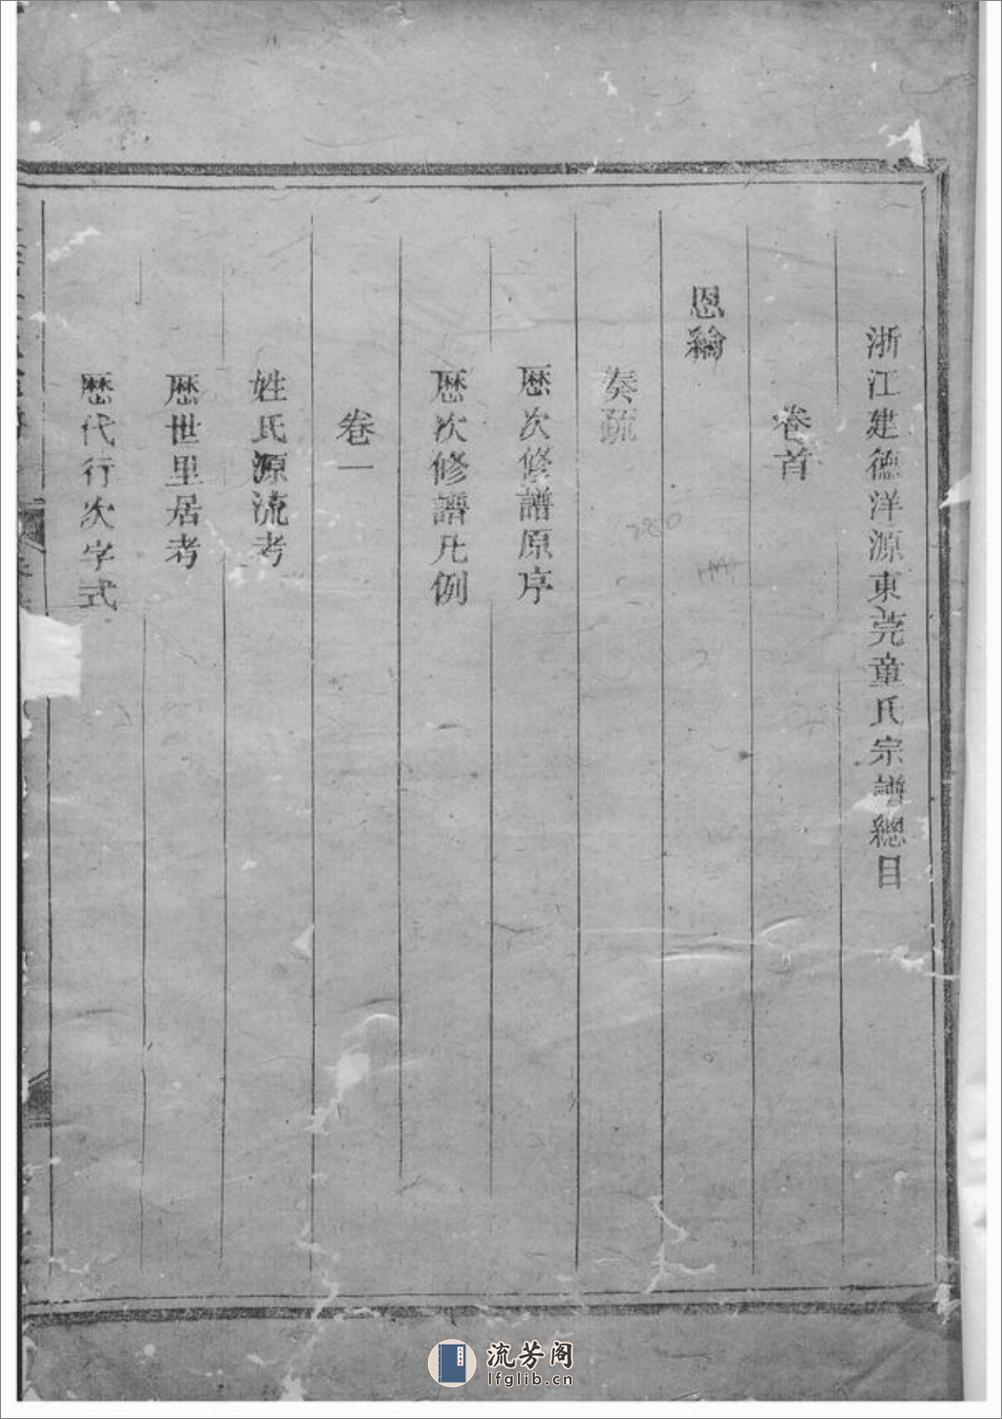 浙江建德洋源東莞童氏宗譜總目
卷首
恩綸
奏疏
歷次修譜原序
歷次修譜凡例
卷一
姓氏源流考
歷世里居考
歷代行次字式
流芳阁
lfglib.cn